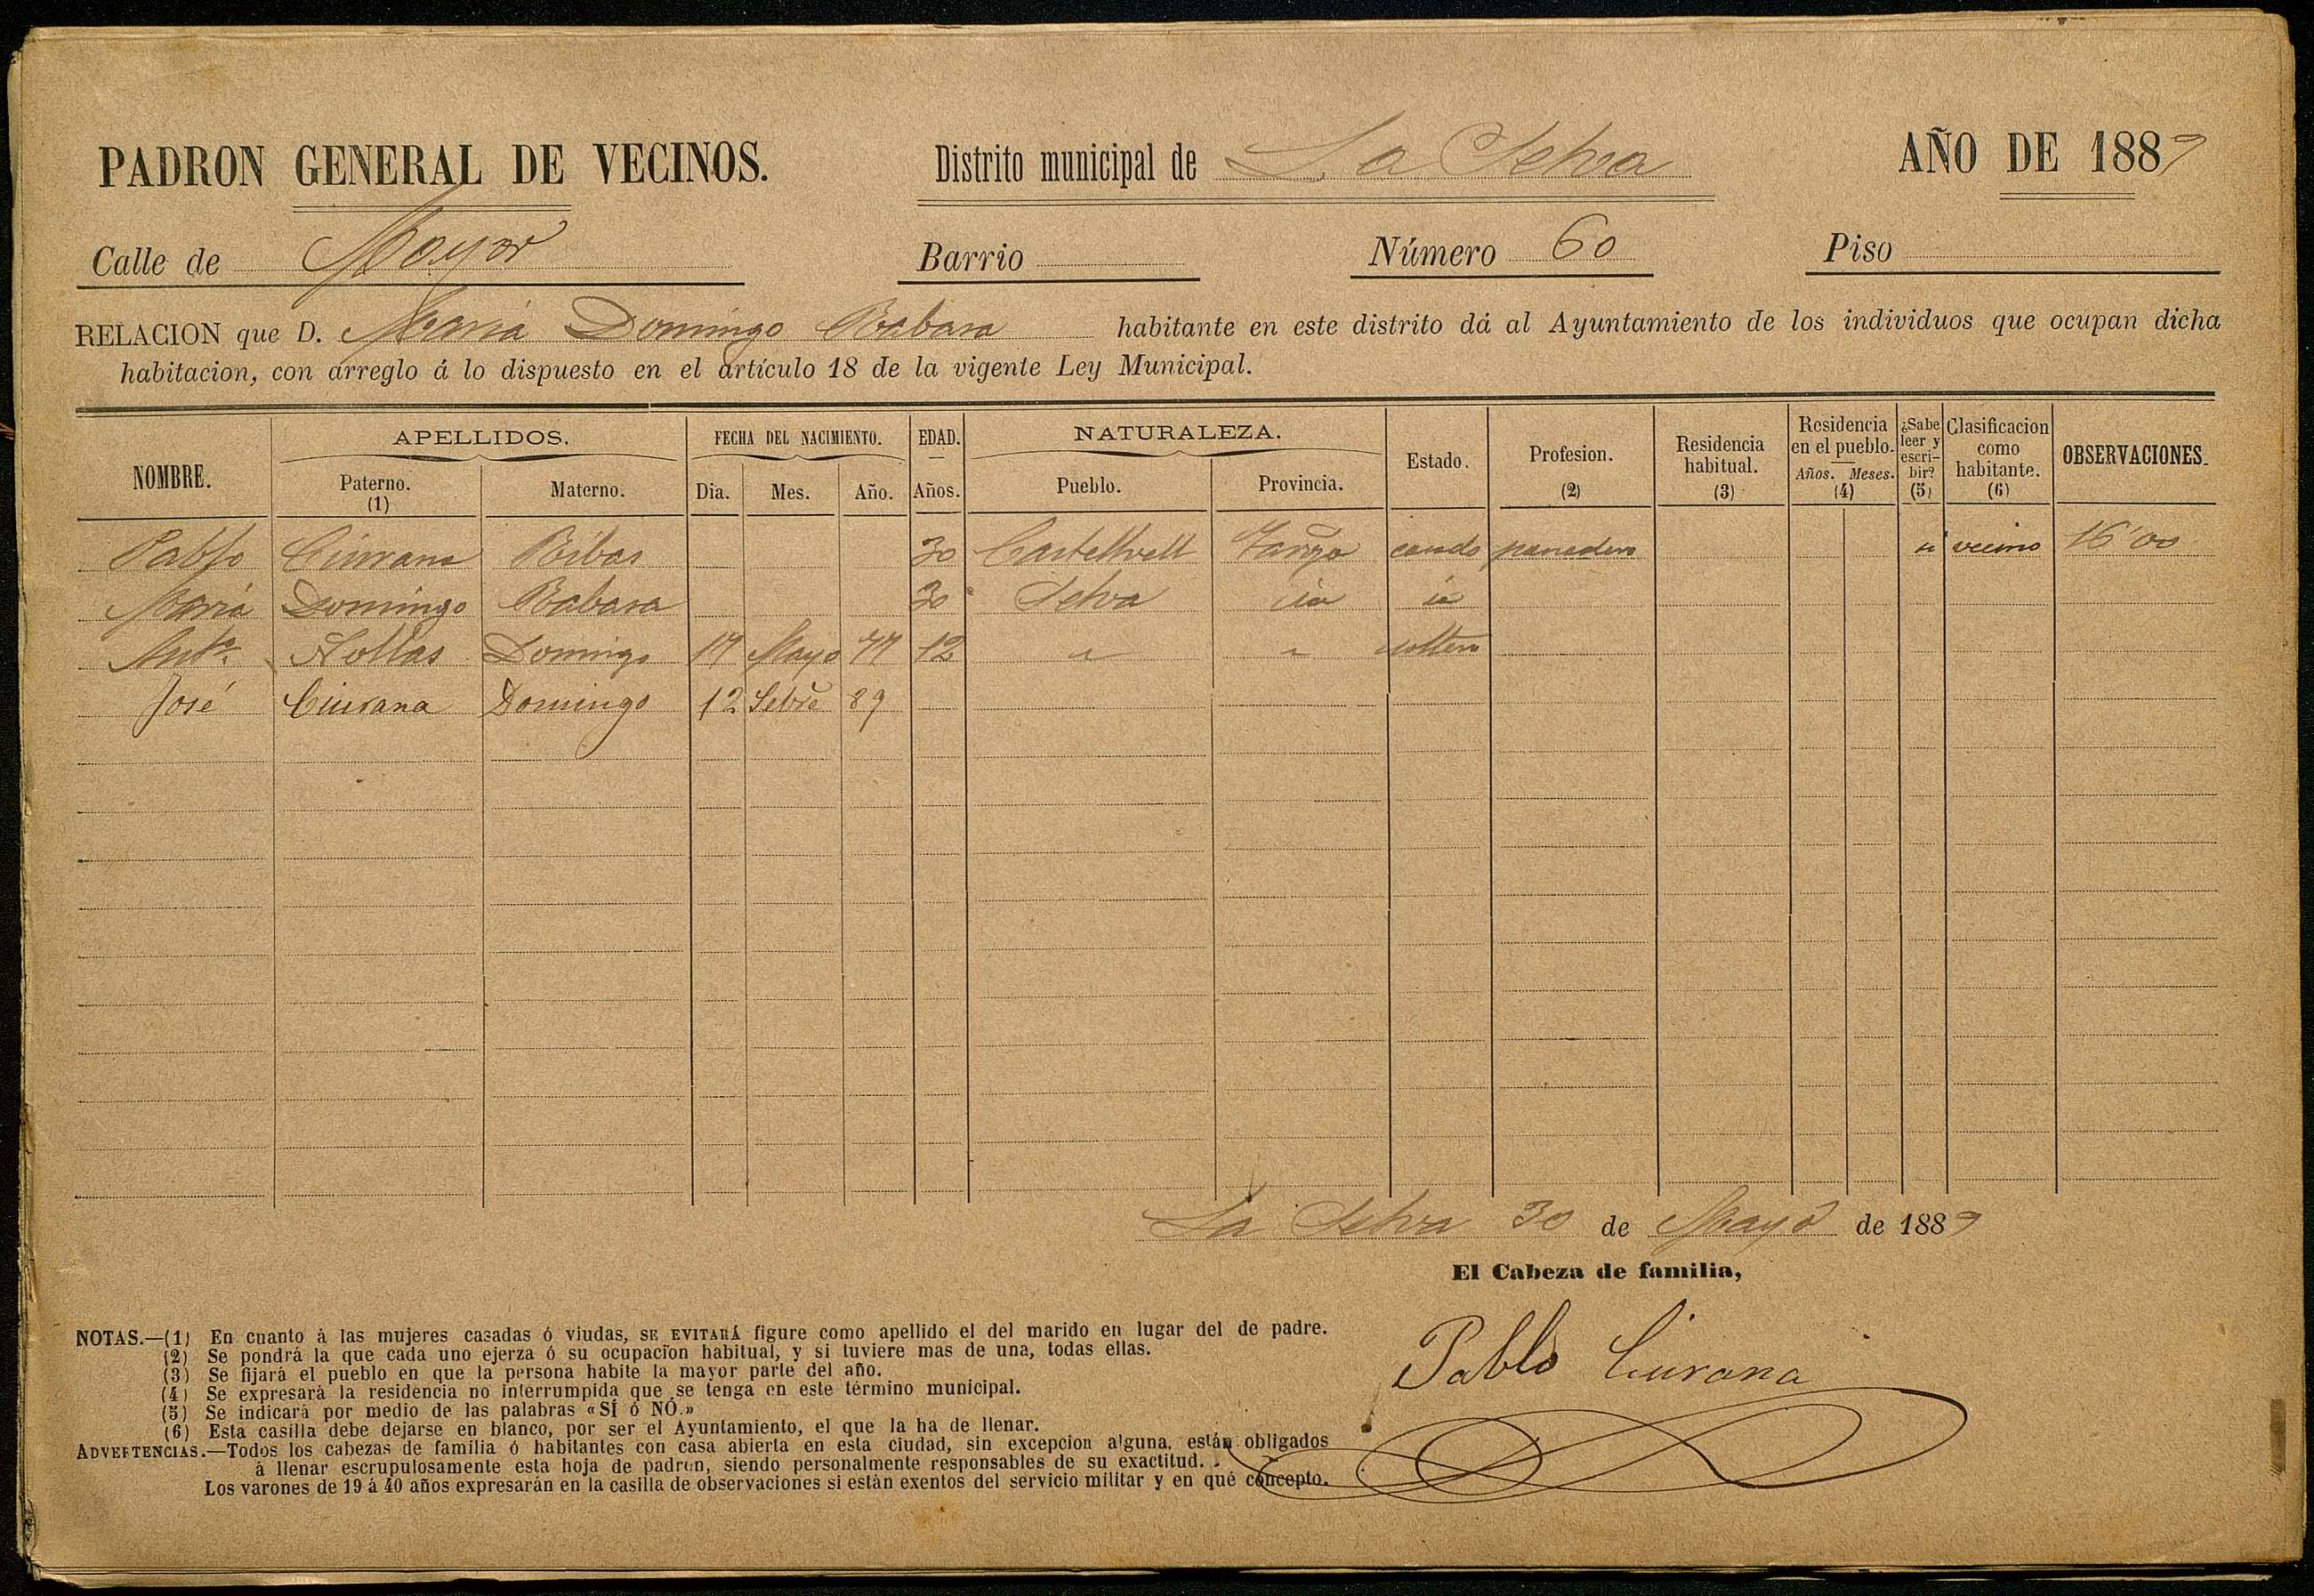 PADRON GENERAL DE VECINOS. Distrito municipal de La Selva AÑO DE 1889
Calle de Mayor Barrio Número 60 Piso
RELACION que D. Maria Domingo Babara habitante en este distrito dá al Ayuntamiento de los individuos que ocupan dicha
habitacion, con arreglo á lo dispuesto en el artículo 18 de la vigente Ley Municipal.
NOMBRE. APELLIDOS. Paterno. (1) Materno. FECHA DEL NACIMIENTO. Dia. Mes. Año. EDAD. Años. NATURALEZA. Pueblo. Provincia. Estado. Profesion. (2) Residencia habitual. (3) Residencia en el pueblo. Años. Meses. (4) ¿Sabe leer y escribir? (5) Clasificacion como habitante. (6) OBSERVACIONES.
Pablo Ciurana Ribas 30 Castellvell Tarrga casado panadero si vecino 16'00
Maria Domingo Babara 30 Selva id id
Anta. Nollas Domingo 17 Mayo 77 12 " " soltera
José Ciurana Domingo 12 Sebre 89
La Selva 30 de Mayo de 1889
El Cabeza de familia,
Pablo Ciurana
NOTAS.—(1) En cuanto á las mujeres casadas ó viudas, SE EVITARÁ figure como apellido el del marido en lugar del de padre.
(2) Se pondrá la que cada uno ejerza ó su ocupacion habitual, y si tuviere mas de una, todas ellas.
(3) Se fijará el pueblo en que la persona habite la mayor parte del año.
(4) Se expresará la residencia no interrumpida que se tenga en este término municipal.
(5) Se indicará por medio de las palabras «SÍ ó NO.»
(6) Esta casilla debe dejarse en blanco, por ser el Ayuntamiento, el que la ha de llenar.
ADVERTENCIAS.—Todos los cabezas de familia ó habitantes con casa abierta en esta ciudad, sin excepcion alguna, están obligados
á llenar escrupulosamente esta hoja de padron, siendo personalmente responsables de su exactitud.
Los varones de 19 á 40 años expresarán en la casilla de observaciones si están exentos del servicio militar y en qué concepto.